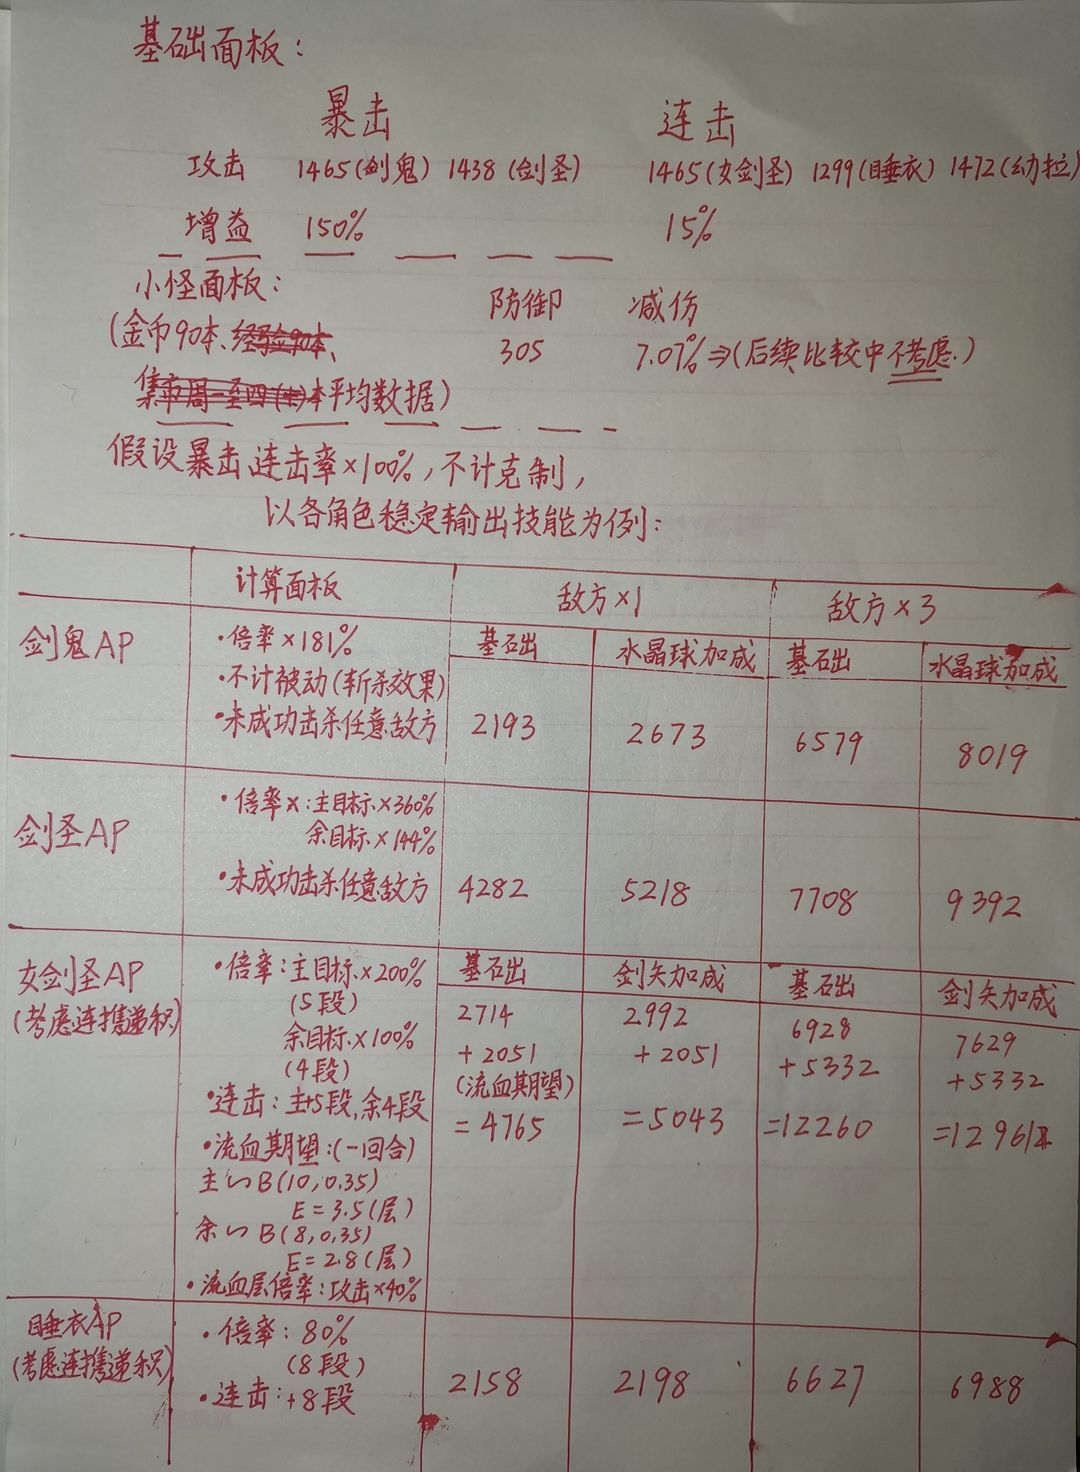 基础面板：
暴击 连击
攻击 1465(剑鬼) 1438(剑圣) 1465(女剑圣) 1299(睡衣) 1472(幼拉)
增益 150% 15%
小怪面板： 防御 减伤
(金币90本、经验90本、 305 7.07%⇒(后续比较中不考虑.)
集市周一至四(七)本平均数据)
假设暴击、连击率×100%，不计克制，
以各角色稳定输出技能为例：
计算面板 敌方×1 敌方×3
剑鬼AP ·倍率×181% 基础 水晶球加成 基础 水晶球加成
·不计被动(斩杀效果)
·未成功击杀任意敌方 2193 2673 6579 8019
剑圣AP ·倍率×:主目标×360%
余目标×144%
·未成功击杀任意敌方 4282 5218 7708 9392
女剑圣AP ·倍率:主目标×200% 基础 剑矢加成 基础 剑矢加成
(考虑连携递积) (5段) 2714 2992 6928 7629
余目标×100% +2051 +2051 +5332 +5332
(4段) (流血期望)
·连击:主+5段,余4段 =4765 =5043 =12260 =12961
·流血期望:(一回合)
主∽B(10,0.35)
E=3.5(层)
余∽B(8,0.35)
E=2.8(层)
·流血层倍率:攻击×40%
睡衣AP ·倍率:80%
(考虑连携递积) (8段)
·连击:+8段 2158 2198 6627 6988